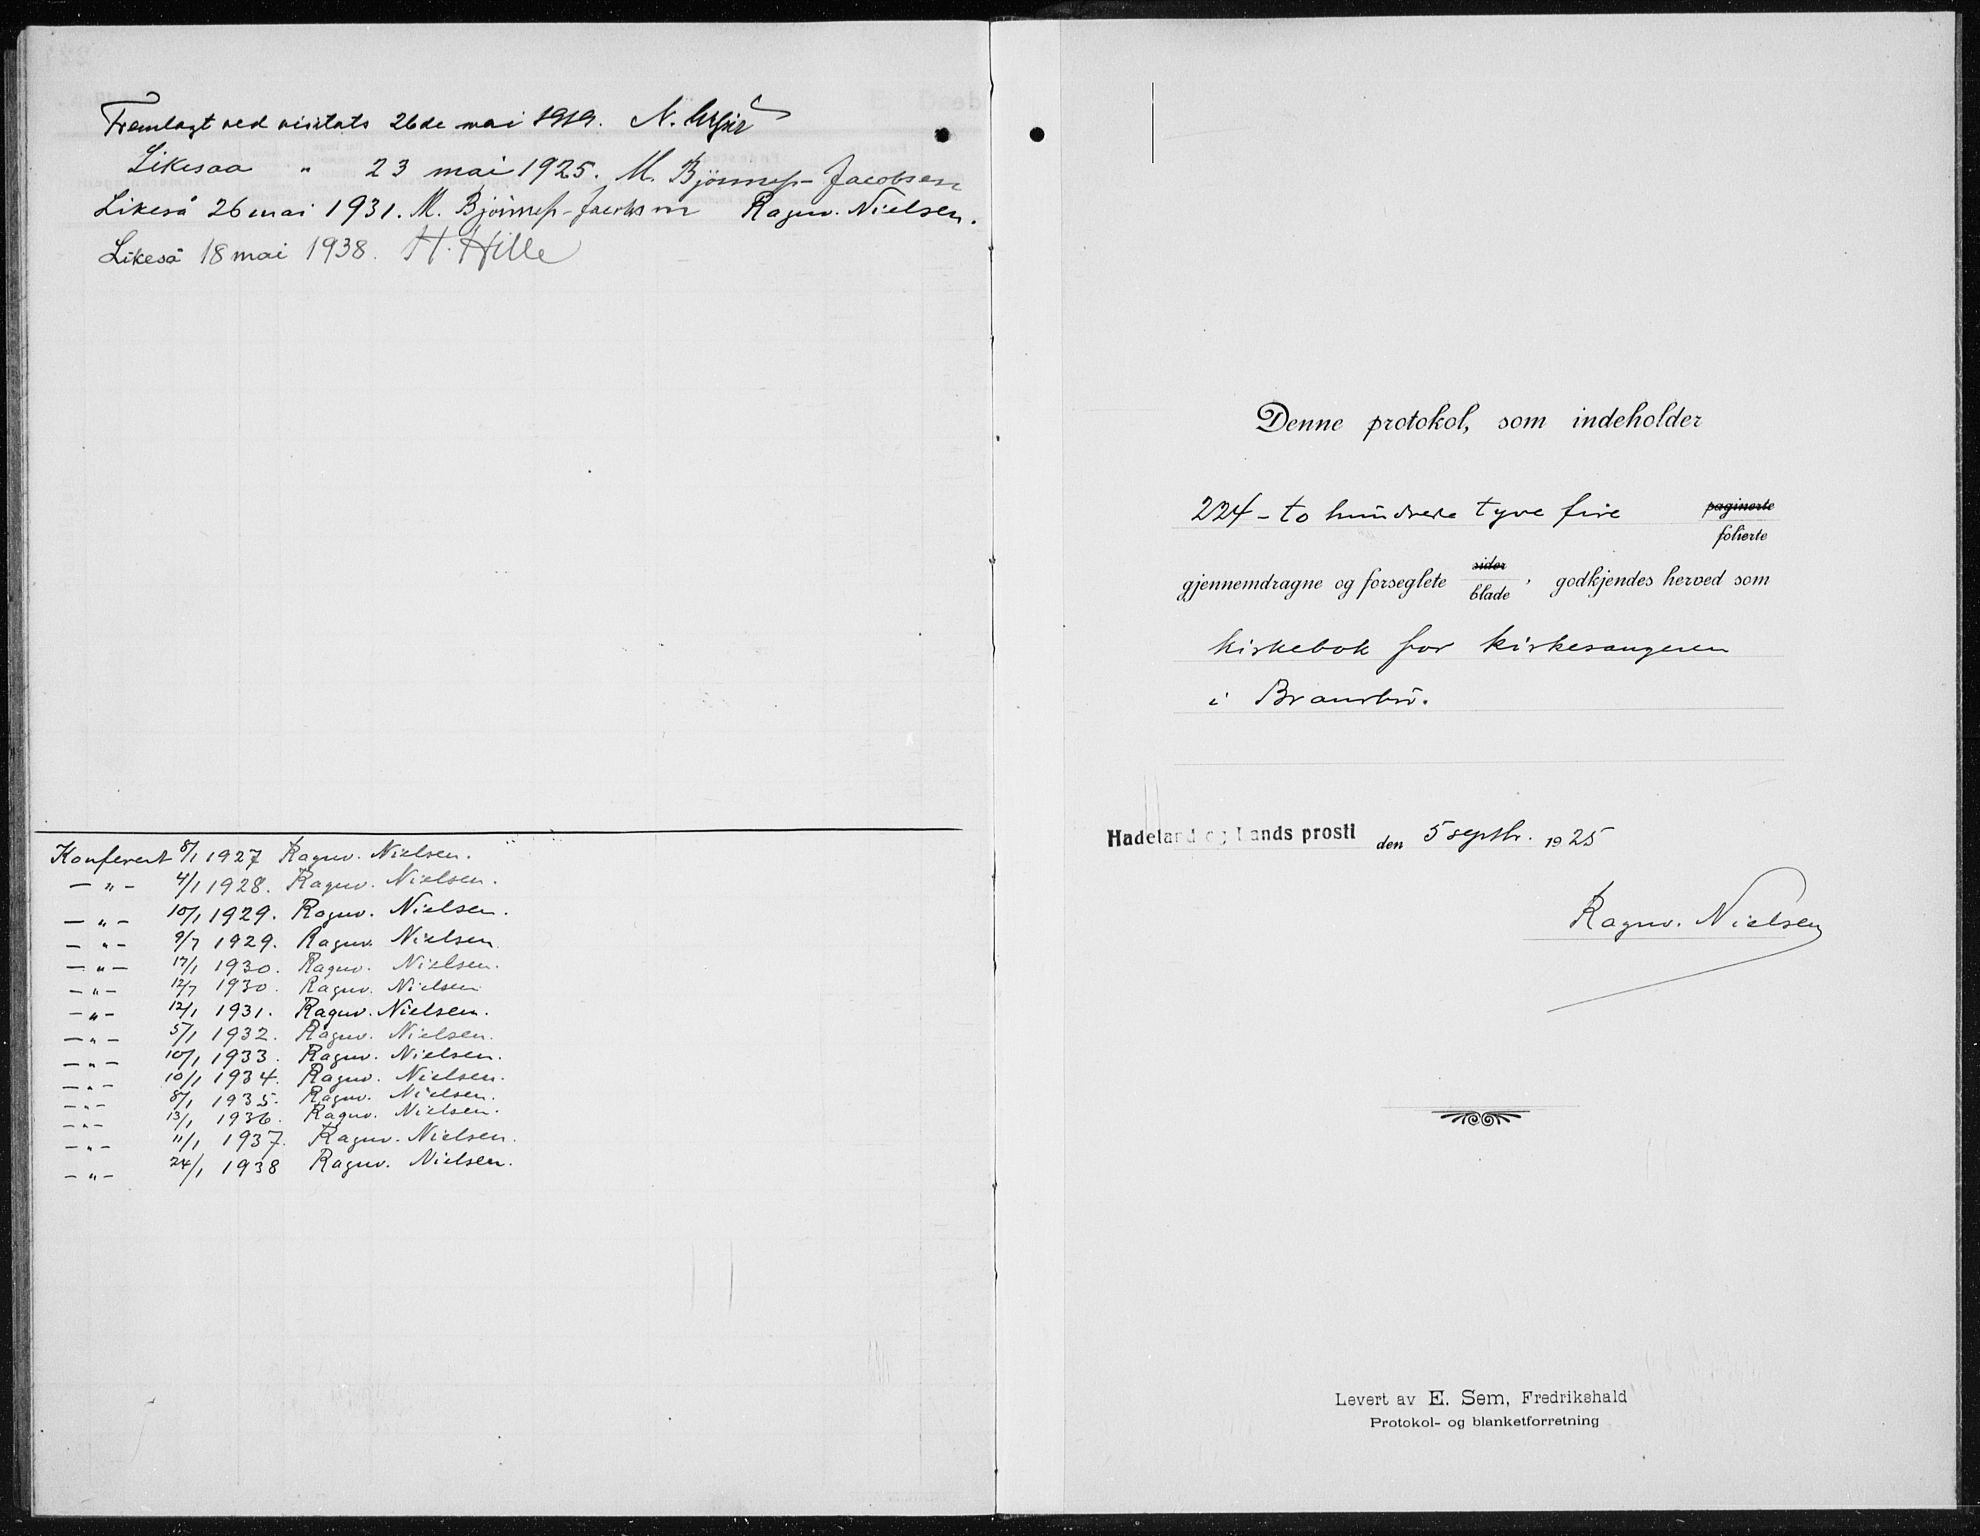 Fremlagt ved visitats 26de mai 1919. N.
Likesaa " 23 mai 1925. M. Bjönnes-Jacobsen
Likeså 26 mai 1931. M. Bjönnes-Jacobsen Ragnv. Nielsen.
Likeså 18 mai 1938. H. Hille
Konferert 8/1 1927 Ragnv. Nielsen.
— " — 4/1 1928. Ragnv. Nielsen.
— " — 10/1 1929. Ragnv. Nielsen.
— " — 9/7 1929. Ragnv. Nielsen.
— " — 17/1 1930. Ragnv. Nielsen.
— " — 12/7 1930. Ragnv. Nielsen
— " — 12/1 1931. Ragnv. Nielsen.
— " — 5/1 1932. Ragnv. Nielsen.
— " — 10/1 1933. Ragnv. Nielsen.
— " — 10/1 1934. Ragnv. Nielsen.
— " — 8/1 1935. Ragnv. Nielsen.
— " — 13/1 1936. Ragnv. Nielsen.
— " — 11/1 1937. Ragnv. Nielsen.
— " — 24/1 1938 Ragnv. Nielsen.
Denne protokol, som indeholder
224 – to hundrede tyve fire paginerte
folierte
gjennemdragne og forseglete sider
blade, godkjendes herved som
kirkebok for kirkesangeren
i Brandbu.
Hadeland og Lands prosti den 5 septbr. 1925
Ragnv. Nielsen
Levert av E. Sem, Fredrikshald
Protokol- og blanketforretning